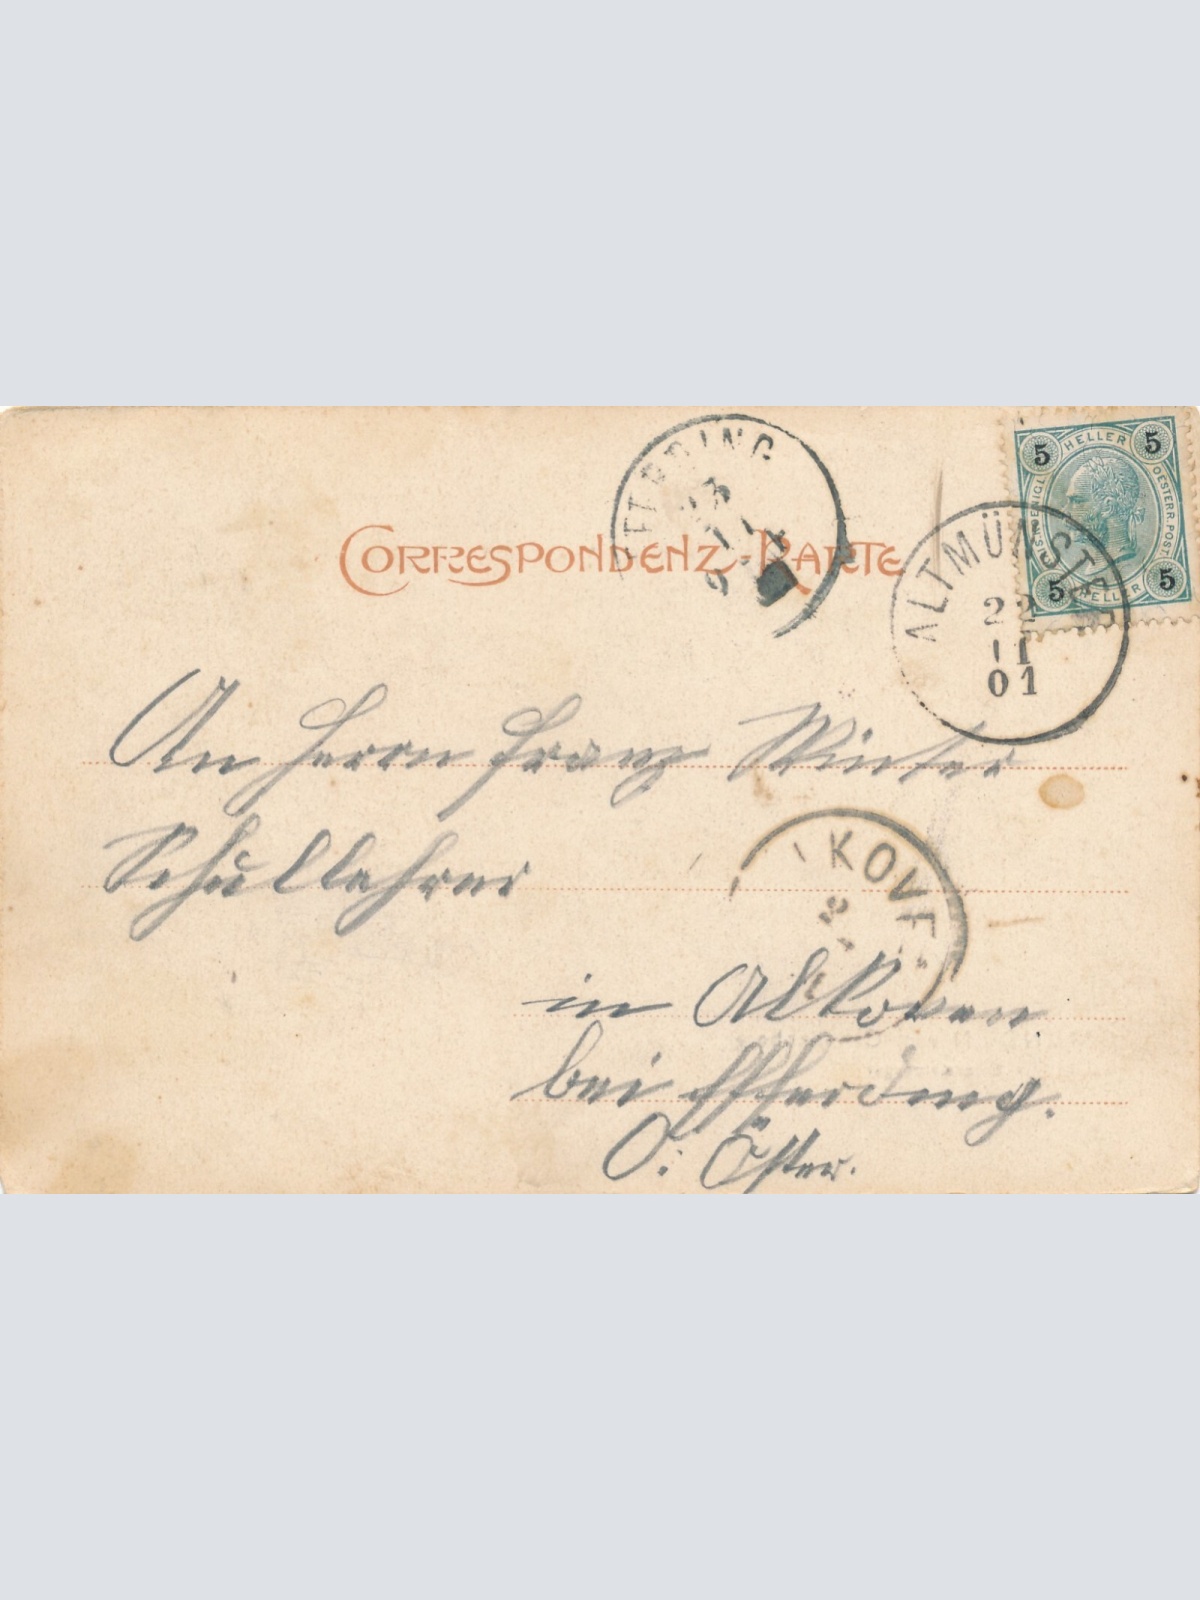 CORRESPONDENZ-KARTE
5 HELLER 5
OESTERR. POST.
5 HELLER 5
ALTMÜNSTER
22
11
01
23
11
KOVE
An Herrn Franz Winter
Schullehrer
in Alkoven
bei Efferding.
O. Öster.